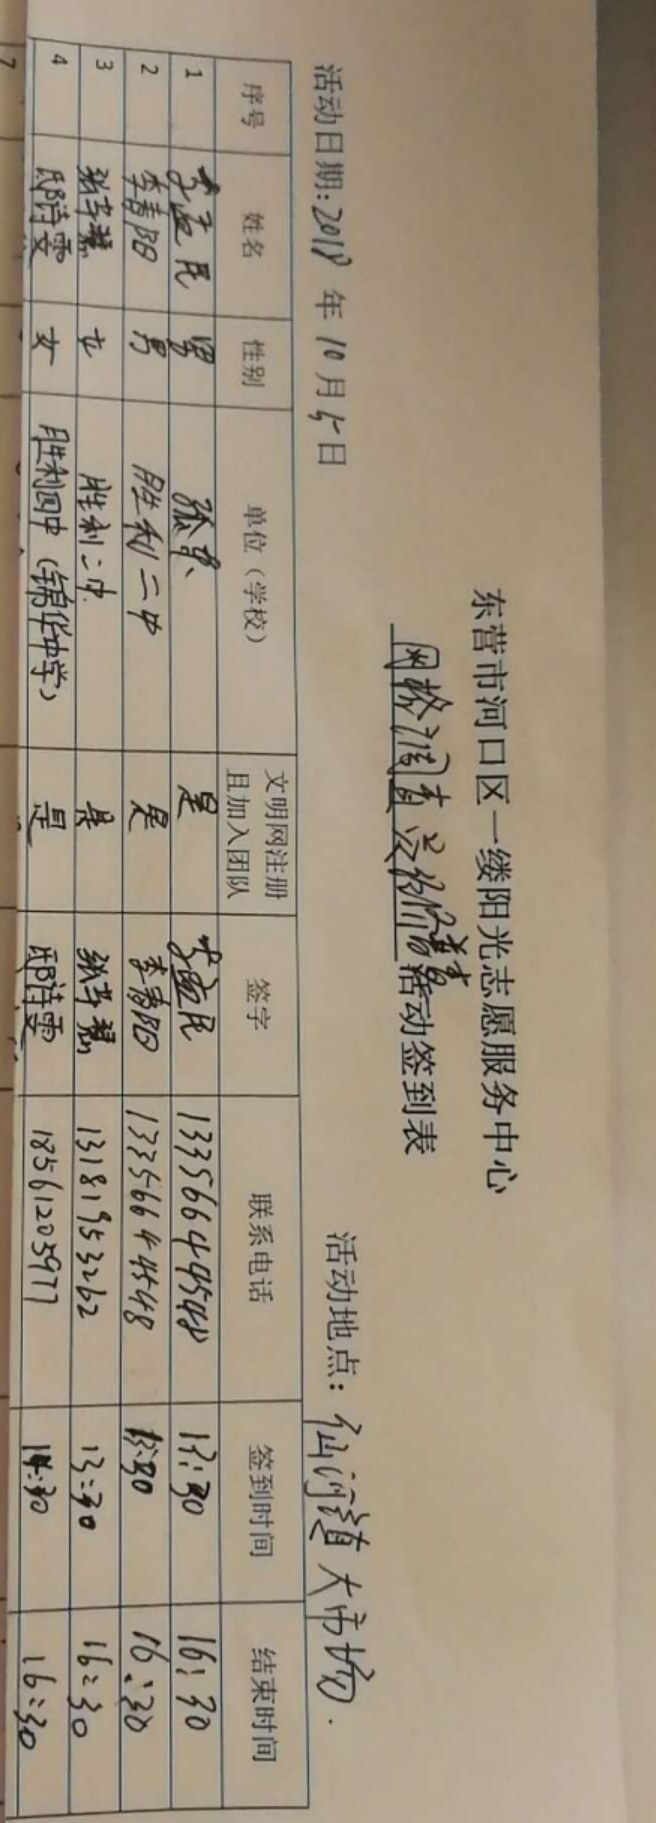 东营市河口区一缕阳光志愿服务中心
活动签到表
活动日期:2018年10月5日 活动地点:仙河镇大市场.
序号 姓名 性别 单位(学校) 文明网注册且加入团队 签字 联系电话 签到时间 结束时间
1 李孟民 男 孤东 是 李孟民 13356644548 13:30 16:30
2 李春阳 男 胜利二中 是 李春阳 13356644548 13:30 16:30
3 女 胜利二中 是 13181953262 13:30 16:30
4 邸诗雯 女 胜利四中(锦华中学) 是 邸诗雯 18561205977 14:30 16:30
7